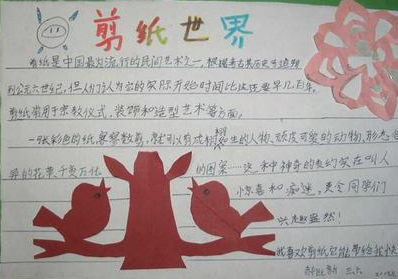 剪纸世界
剪纸是中国最为流行的民间艺术之一，根据考古其历史可追溯
到公元六世纪，但人们认为它的实际开始时间比这还要早几百年。
剪纸常用于宗教仪式，装饰和造型艺术等方面。
一张彩色的纸，寥寥数剪，就可以剪成栩栩如生的人物、顽皮可爱的动物，形态
的花草千变万化 的图案……这种神奇的 实在叫人
惊喜和痴迷，更令同学们
兴趣盎然！
我喜欢剪纸